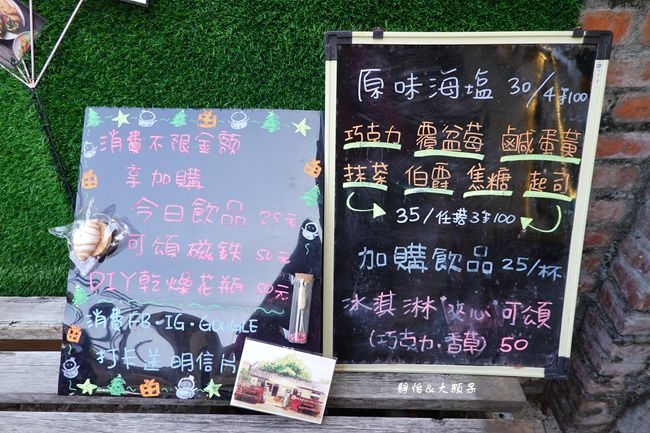 消費不限金額
享加購
今日飲品 25元
可頌磁鐵 50元
DIY乾燥花瓶 50元
消費FB·IG·GOUGLE
打卡送明信片
原味海塩 30/4予100
巧克力 覆盆莓 鹹蛋黃
抹茶 伯爵 焦糖 起司
35/任搭3予100
加購飲品 25/杯
冰淇淋"夾心"可頌
(巧克力·香草) 50